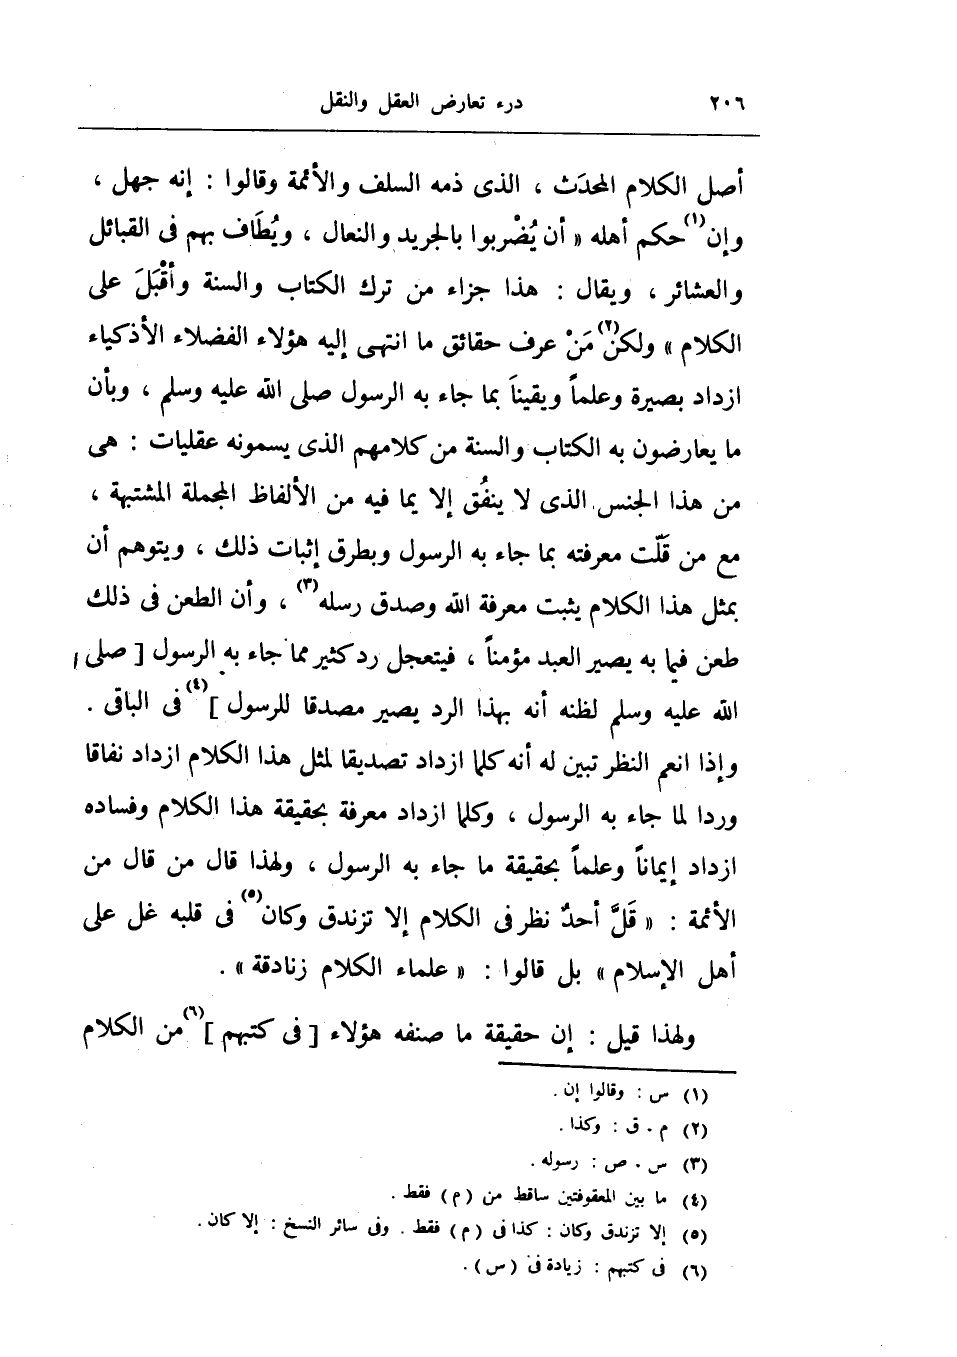 ٢٠٦ درء تعارض العقل والنقل
أصل الكلام المحدَث ، الذى ذمه السلف والأئمة وقالوا : إنه جهل ،
وإن(١) حكم أهله « أن يُضْربوا بالجريد والنعال ، ويُطَاف بهم فى القبائل
والعشائر ، ويقال : هذا جزاء من ترك الكتاب والسنة وأقْبَلَ على
الكلام » ولكن(٢) مَنْ عرف حقائق ما انتهى إليه هؤلاء الفضلاء الأذكياء
ازداد بصيرة وعلماً ويقيناً بما جاء به الرسول صلى الله عليه وسلم ، وبأن
ما يعارضون به الكتاب والسنة من كلامهم الذى يسمونه عقليات : هى
من هذا الجنس الذى لا ينفُق إلا بما فيه من الألفاظ المجملة المشتبهة ،
مع من قَلّت معرفته بما جاء به الرسول وبطرق إثبات ذلك ، ويتوهم أن
بمثل هذا الكلام يثبت معرفة الله وصدق رسله(٣) ، وأن الطعن فى ذلك
طعن فيما به يصير العبد مؤمناً ، فيتعجل رد كثير مما جاء به الرسول [ صلى
الله عليه وسلم لظنه أنه بهذا الرد يصير مصدقا للرسول ](٤) فى الباقى .
وإذا انعم النظر تبين له أنه كلما ازداد تصديقا لمثل هذا الكلام ازداد نفاقا
وردا لما جاء به الرسول ، وكلما ازداد معرفة بحقيقة هذا الكلام وفساده
ازداد إيماناً وعلماً بحقيقة ما جاء به الرسول ، ولهذا قال من قال من
الأئمة : « قَلَّ أحدٌ نظر فى الكلام إلا تزندق وكان(٥) فى قلبه غل على
أهل الإسلام » بل قالوا : « علماء الكلام زنادقة » .
ولهذا قيل : إن حقيقة ما صنفه هؤلاء [ فى كتبهم ](٦) من الكلام
(١) س : وقالوا إن .
(٢) م ، ق : وكذا .
(٣) س ، ص : رسوله .
(٤) ما بين المعقوفتين ساقط من ( م ) فقط .
(٥) إلا تزندق وكان : كذا فى ( م ) فقط . وفى سائر النسخ : إلا كان .
(٦) فى كتبهم : زيادة فى ( س ) .